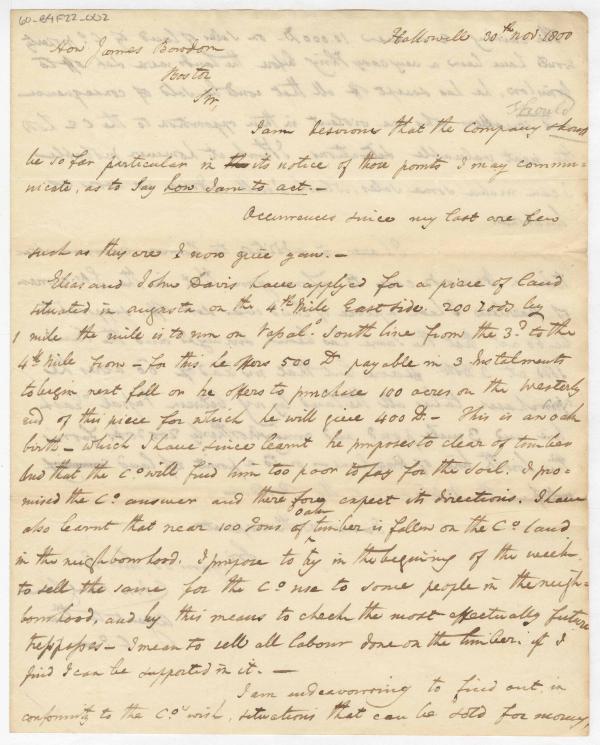 60-E4F22-002
Hallowell 30th nov. 1800
Hon James Bowdoin
Boston
Sir,
should
I am desirous that the Company shoud
be so far particular in the its notice of those points I may commu-
nicate, as to Say how I am to act. -
Occurrences since my last are few
such as they are I now give you. -
Elias and John Davis have applyed for a piece of land
situated in augusta on the 4th Mile East side. 200 rods by
1 mile the mile is to run on Vassalo South line from the 3d to the
4th Mile from - for this he offers 500 D payable in 3 Instalments
to begin next fall or he offers to purchase 100 acres on the Westerly
end of this piece for which he will give 400 D. - This is an oak
birth - which I have since learnt he proposes to clear of timber
And that the Co will find him too poor to pay for the soil. I pro-
mised the Co answer and therefore expect its directions. I have
also learnt that near 100 tons of oak timber is fallen on the Co land
in the neighbourhood. I propose to try in the beginning of the week
to sell the same for the Co use to some people in the neigh-
bourhood, and by this means to check the most effectually future
trespasses - I mean to sell all labour done on the timber. if I
find I can be supported in it. -
I am endeavorring to find out in
conformity to the Co's wish, situations that can be sold for money,